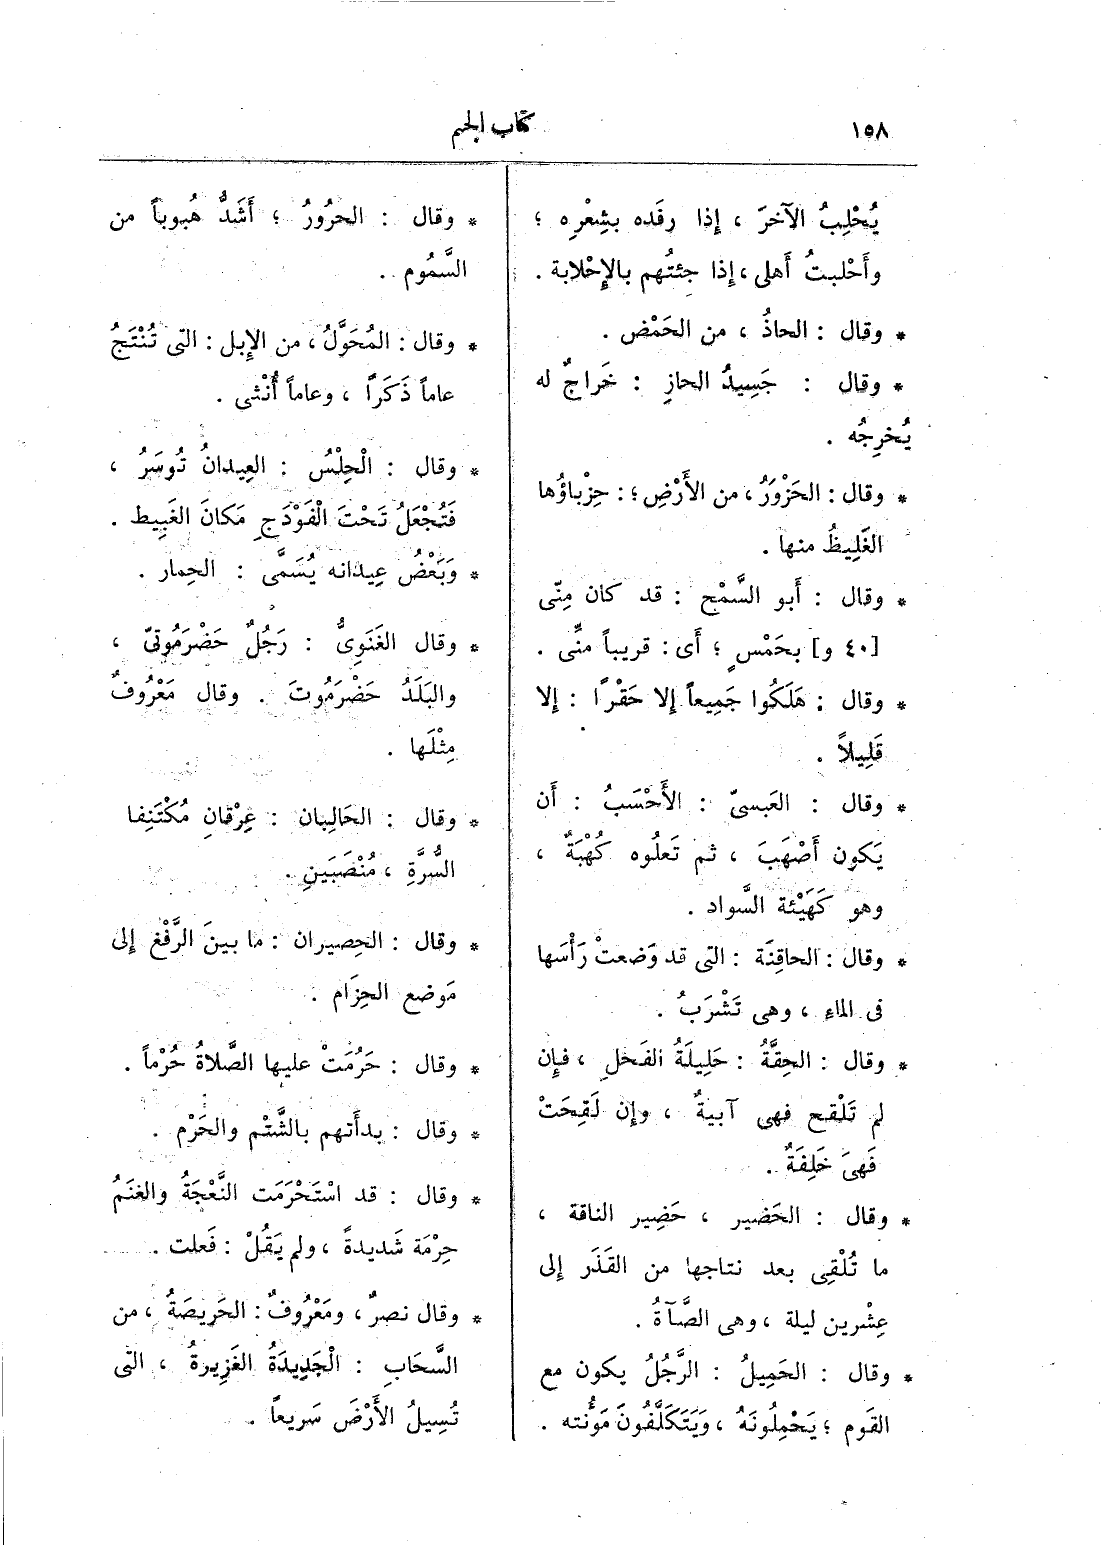 ١٥٨
كتاب الجيم
يُحْلِبُ الآخرَ ، إذا رفَده بشِعْرِه ؛
وأَحْلبتُ أَهلى ، إذا جئتُهم بالإِحْلابة .
* وقال : الحاذُ ، من الحَمْض .
* وقال : جَسِيدُ الحازِ : خَراجٌ له
يُخرِجُه .
* وقال : الحَزْوَرُ ، من الأَرْضِ ؛ : حِزْباؤُها
الغَلِيظُ منها .
* وقال : أَبو السَّمْحِ : قد كان مِنِّى
[٤٠ و] بحَمْسٍ ؛ أَى : قريباً منِّى .
* وقال : هَلَكُوا جَمِيعاً إلا حَقْرًا : إلا
قَلِيلاً .
* وقال : العَبسىّ : الأَحْسَبُ : أَن
يَكون أَصْهَبَ ، ثم تَعلُوه كُهْبَةٌ ،
وهو كَهَيْئة السَّواد .
* وقال : الحاقِنَة : التى قد وَضعتْ رَأْسَها
فى الماءِ ، وهى تَشْرَبُ .
* وقال : الحِقَّةُ : حَلِيلَةُ الفَحْلِ ، فإِن
لم تَلْقح فهى آبيةٌ ، وإن لَقِحَتْ
فَهىَ خَلِفَةٌ .
* وقال : الحَضير ، حَضِير الناقة ،
ما تُلْقِى بعد نتاجها من القَذَر إلى
عِشْرين ليلة ، وهى الصَّآةُ .
* وقال : الحَمِيلُ : الرَّجُلُ يكون مع
القَوم ؛ يَحْمِلُونَهُ ، وَيَتَكَلَّفُونَ مَؤُنته .
* وقال : الحرُورُ ؛ أَشَدُّ هُبوباً من
السَّمُوم .
* وقال : المُحَوَّلُ ، من الإِبل : التى تُنْتَجُ
عاماً ذَكَراً ، وعاماً أُنْثى .
* وقال : الْحِلْسُ : العِيدانُ تُوسَرُ ،
فَتُجْعَلُ تَحْتَ الْفَوْدَجِ مَكانَ الغَبِيط .
* وَبَعْضُ عِيدانه يُسَمَّى : الحِمار .
* وقال الغَنَوِىُّ : رَجُلٌ حَضْرَمُوتىّ ،
والبَلَدُ حَضْرَمُوتَ . وقال مَعْرُوفٌ
مِثْلَها .
* وقال : الحَالِبان : عِرْقانِ مُكْتَنِفا
السُّرَّةِ ، مُنْصَبَينِ .
* وقال : الحصِيران : ما بينَ الرَّفْغ إلى
مَوضع الحِزَام .
* وقال : حَرُمَتْ عليها الصَّلاةُ حُرْماً .
* وقال : بدأَتهم بالشَّتْم والحَرْم .
* وقال : قد اسْتَحْرَمَت النَّعْجَةُ والغنَمُ
حِرْمَة شَديدةً ، ولم يَقُلْ : فَعلت .
* وقال نصرٌ ، ومَعْرُوفٌ : الحَريصَةُ ، من
السَّحَابِ : الْجَدِيدَةُ الغَزِيرةُ ، التى
تُسِيلُ الأَرْضَ سَريعاً .